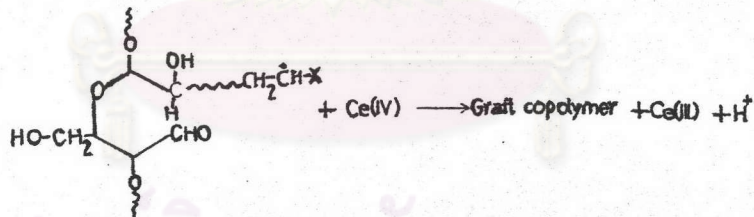 O
OH
O C CH₂-ĊH-X
H
HO-CH₂ CHO
O
+ Ce(IV) ⟶ Graft copolymer + Ce(III) + H⁺